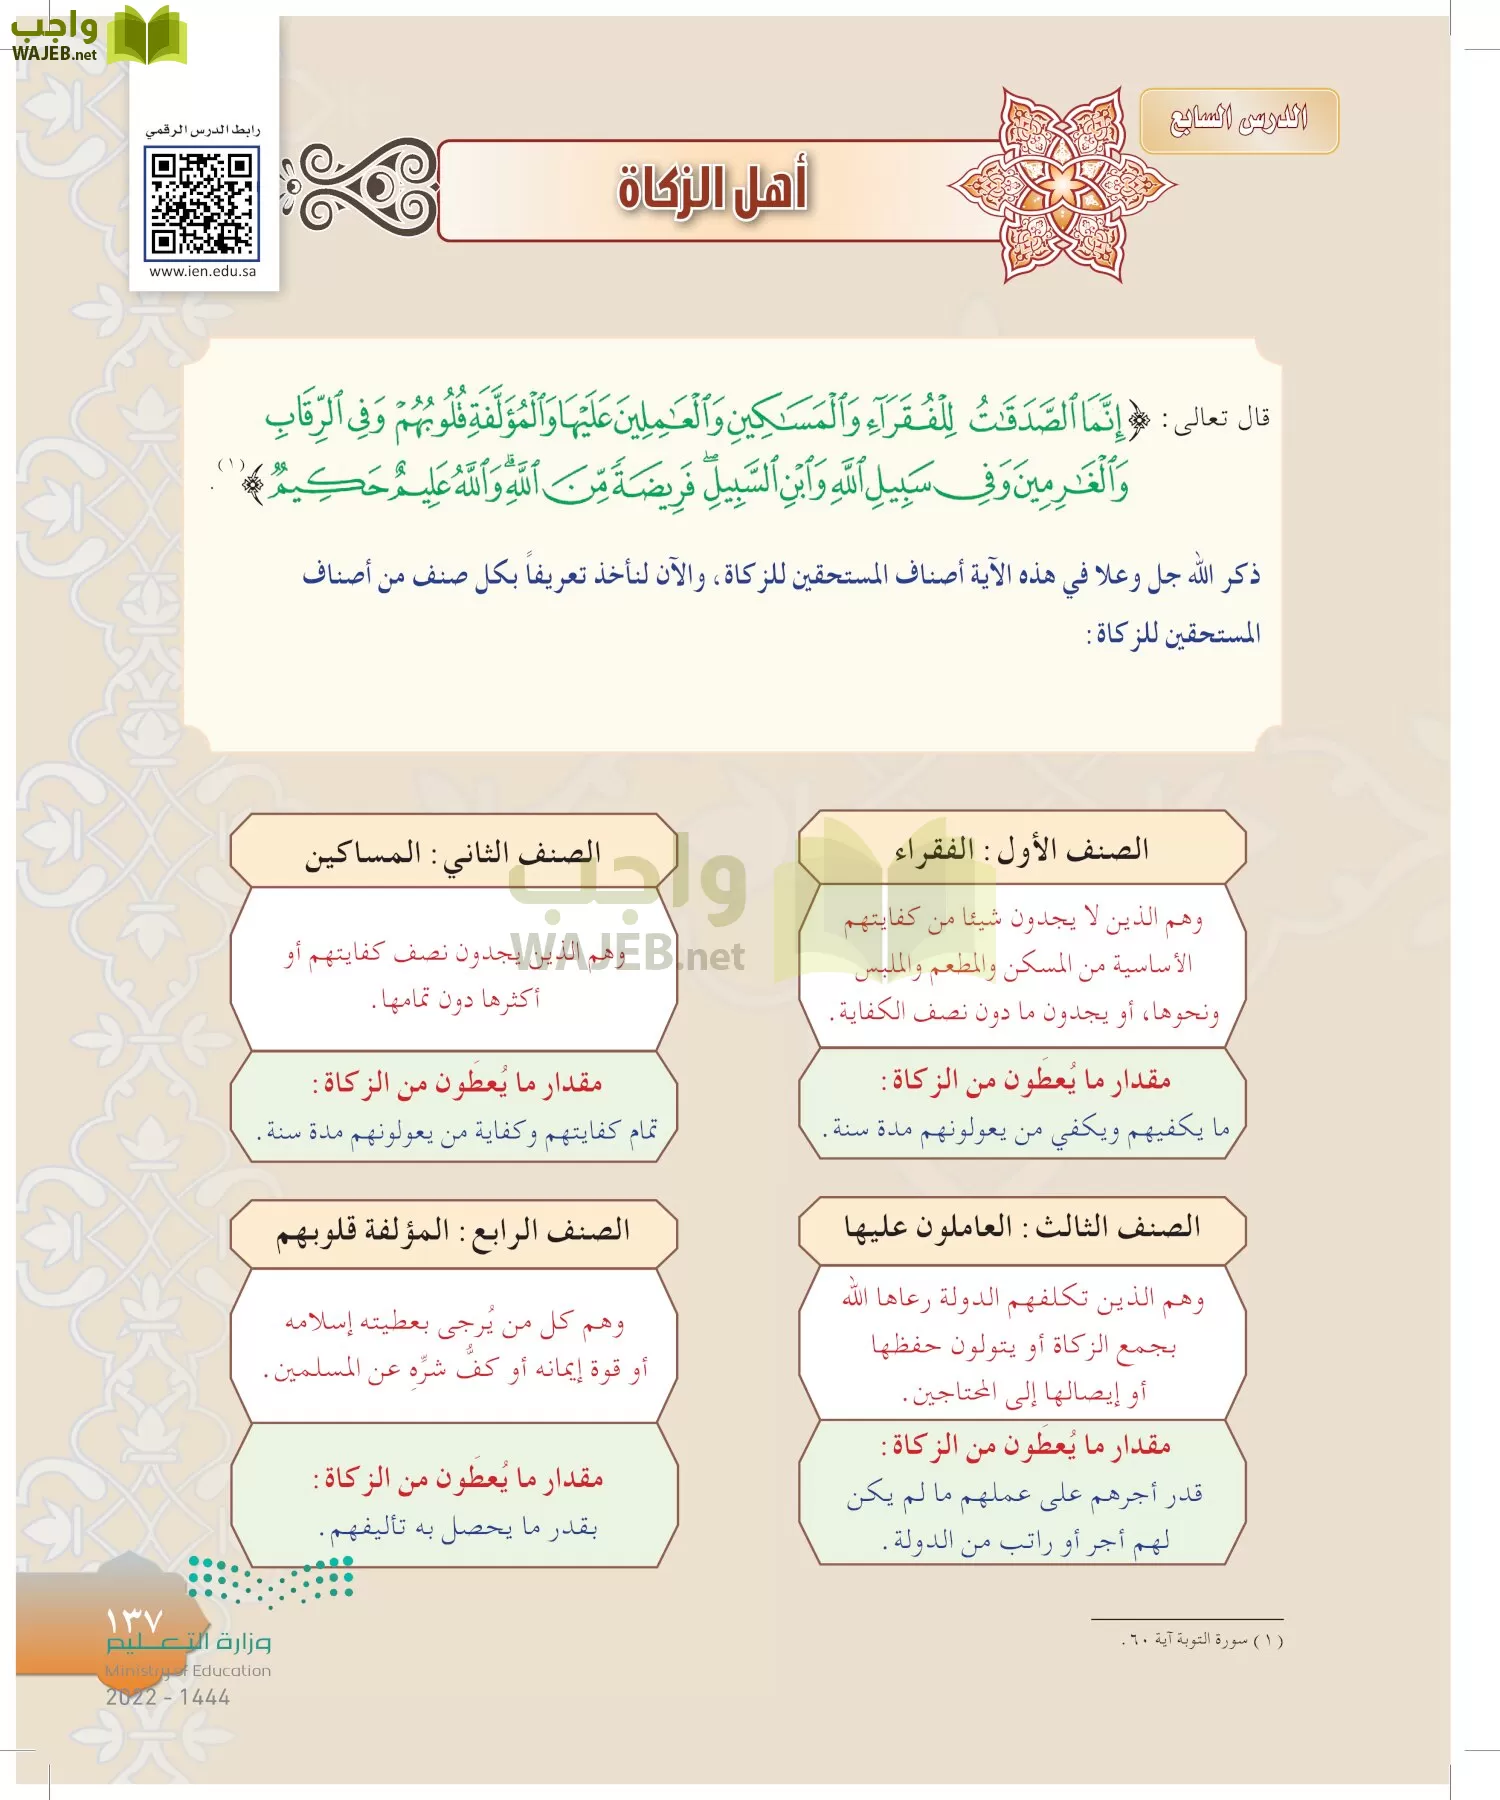 واجب
WAJEB.net
رابط الدرس الرقمي
www.ien.edu.sa
الدرس السابع
أهل الزكاة
قال تعالى: ﴿إِنَّمَا ٱلصَّدَقَٰتُ لِلْفُقَرَآءِ وَٱلْمَسَٰكِينِ وَٱلْعَٰمِلِينَ عَلَيْهَا وَٱلْمُؤَلَّفَةِ قُلُوبُهُمْ وَفِى ٱلرِّقَابِ
وَٱلْغَٰرِمِينَ وَفِى سَبِيلِ ٱللَّهِ وَٱبْنِ ٱلسَّبِيلِ ۖ فَرِيضَةً مِّنَ ٱللَّهِ ۗ وَٱللَّهُ عَلِيمٌ حَكِيمٌ﴾(١).
ذكر الله جل وعلا في هذه الآية أصناف المستحقين للزكاة، والآن لنأخذ تعريفاً بكل صنف من أصناف
المستحقين للزكاة:
الصنف الأول: الفقراء
وهم الذين لا يجدون شيئا من كفايتهم
الأساسية من المسكن والمطعم والملبس
ونحوها، أو يجدون ما دون نصف الكفاية.
مقدار ما يُعطَون من الزكاة:
ما يكفيهم ويكفي من يعولونهم مدة سنة.
الصنف الثاني: المساكين
وهم الذين يجدون نصف كفايتهم أو
أكثرها دون تمامها.
مقدار ما يُعطَون من الزكاة:
تمام كفايتهم وكفاية من يعولونهم مدة سنة.
واجب
WAJEB.net
الصنف الثالث: العاملون عليها
وهم الذين تكلفهم الدولة رعاها الله
بجمع الزكاة أو يتولون حفظها
أو إيصالها إلى المحتاجين.
مقدار ما يُعطَون من الزكاة:
قدر أجرهم على عملهم ما لم يكن
لهم أجر أو راتب من الدولة.
الصنف الرابع: المؤلفة قلوبهم
وهم كل من يُرجى بعطيته إسلامه
أو قوة إيمانه أو كفُّ شرِّهِ عن المسلمين.
مقدار ما يُعطَون من الزكاة:
بقدر ما يحصل به تأليفهم.
(١) سورة التوبة آية ٦٠.
١٣٧
وزارة التعليم
Ministry of Education
2022 - 1444